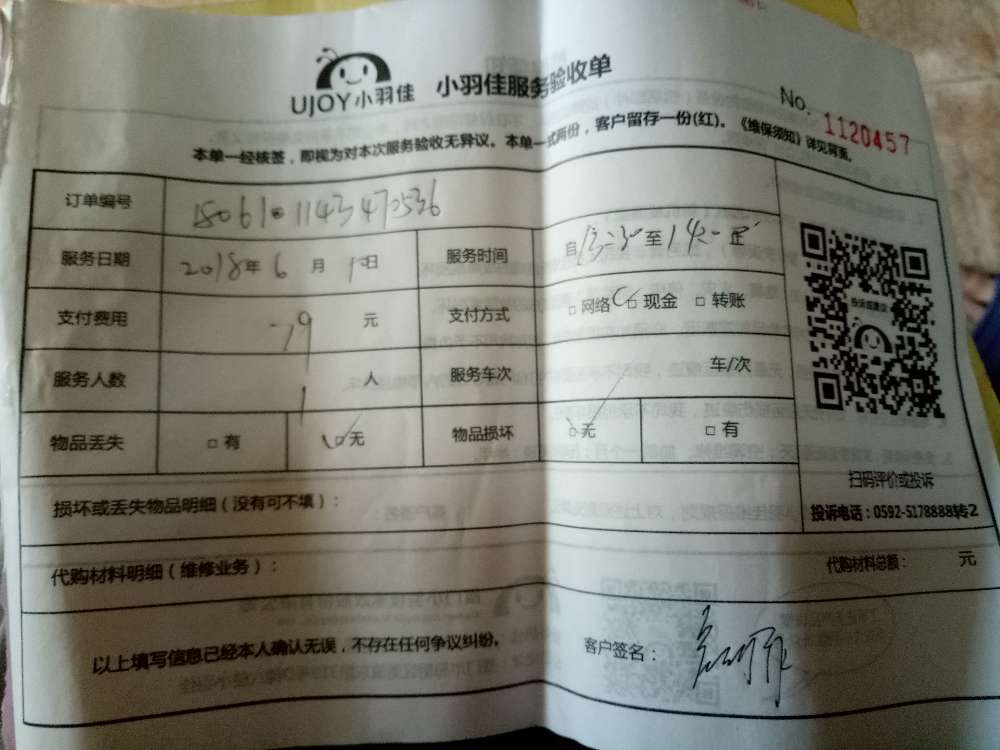 UJOY小羽佳 小羽佳服务验收单
No. 1120457
本单一经核签，即视为对本次服务验收无异议。本单一式两份，客户留存一份(红)。《维保须知》详见背面。
订单编号
服务日期 2018年6月10日 服务时间 自 至
支付费用 元 支付方式 □网络 □现金 □转账
服务人数 1 人 服务车次 车/次
物品丢失 □有 □无 物品损坏 □无 □有
扫码评价或投诉
投诉电话：0592-5178888转2
损坏或丢失物品明细（没有可不填）：
代购材料明细（维修业务）： 代购材料总额： 元
以上填写信息已经本人确认无误，不存在任何争议纠纷。 客户签名：